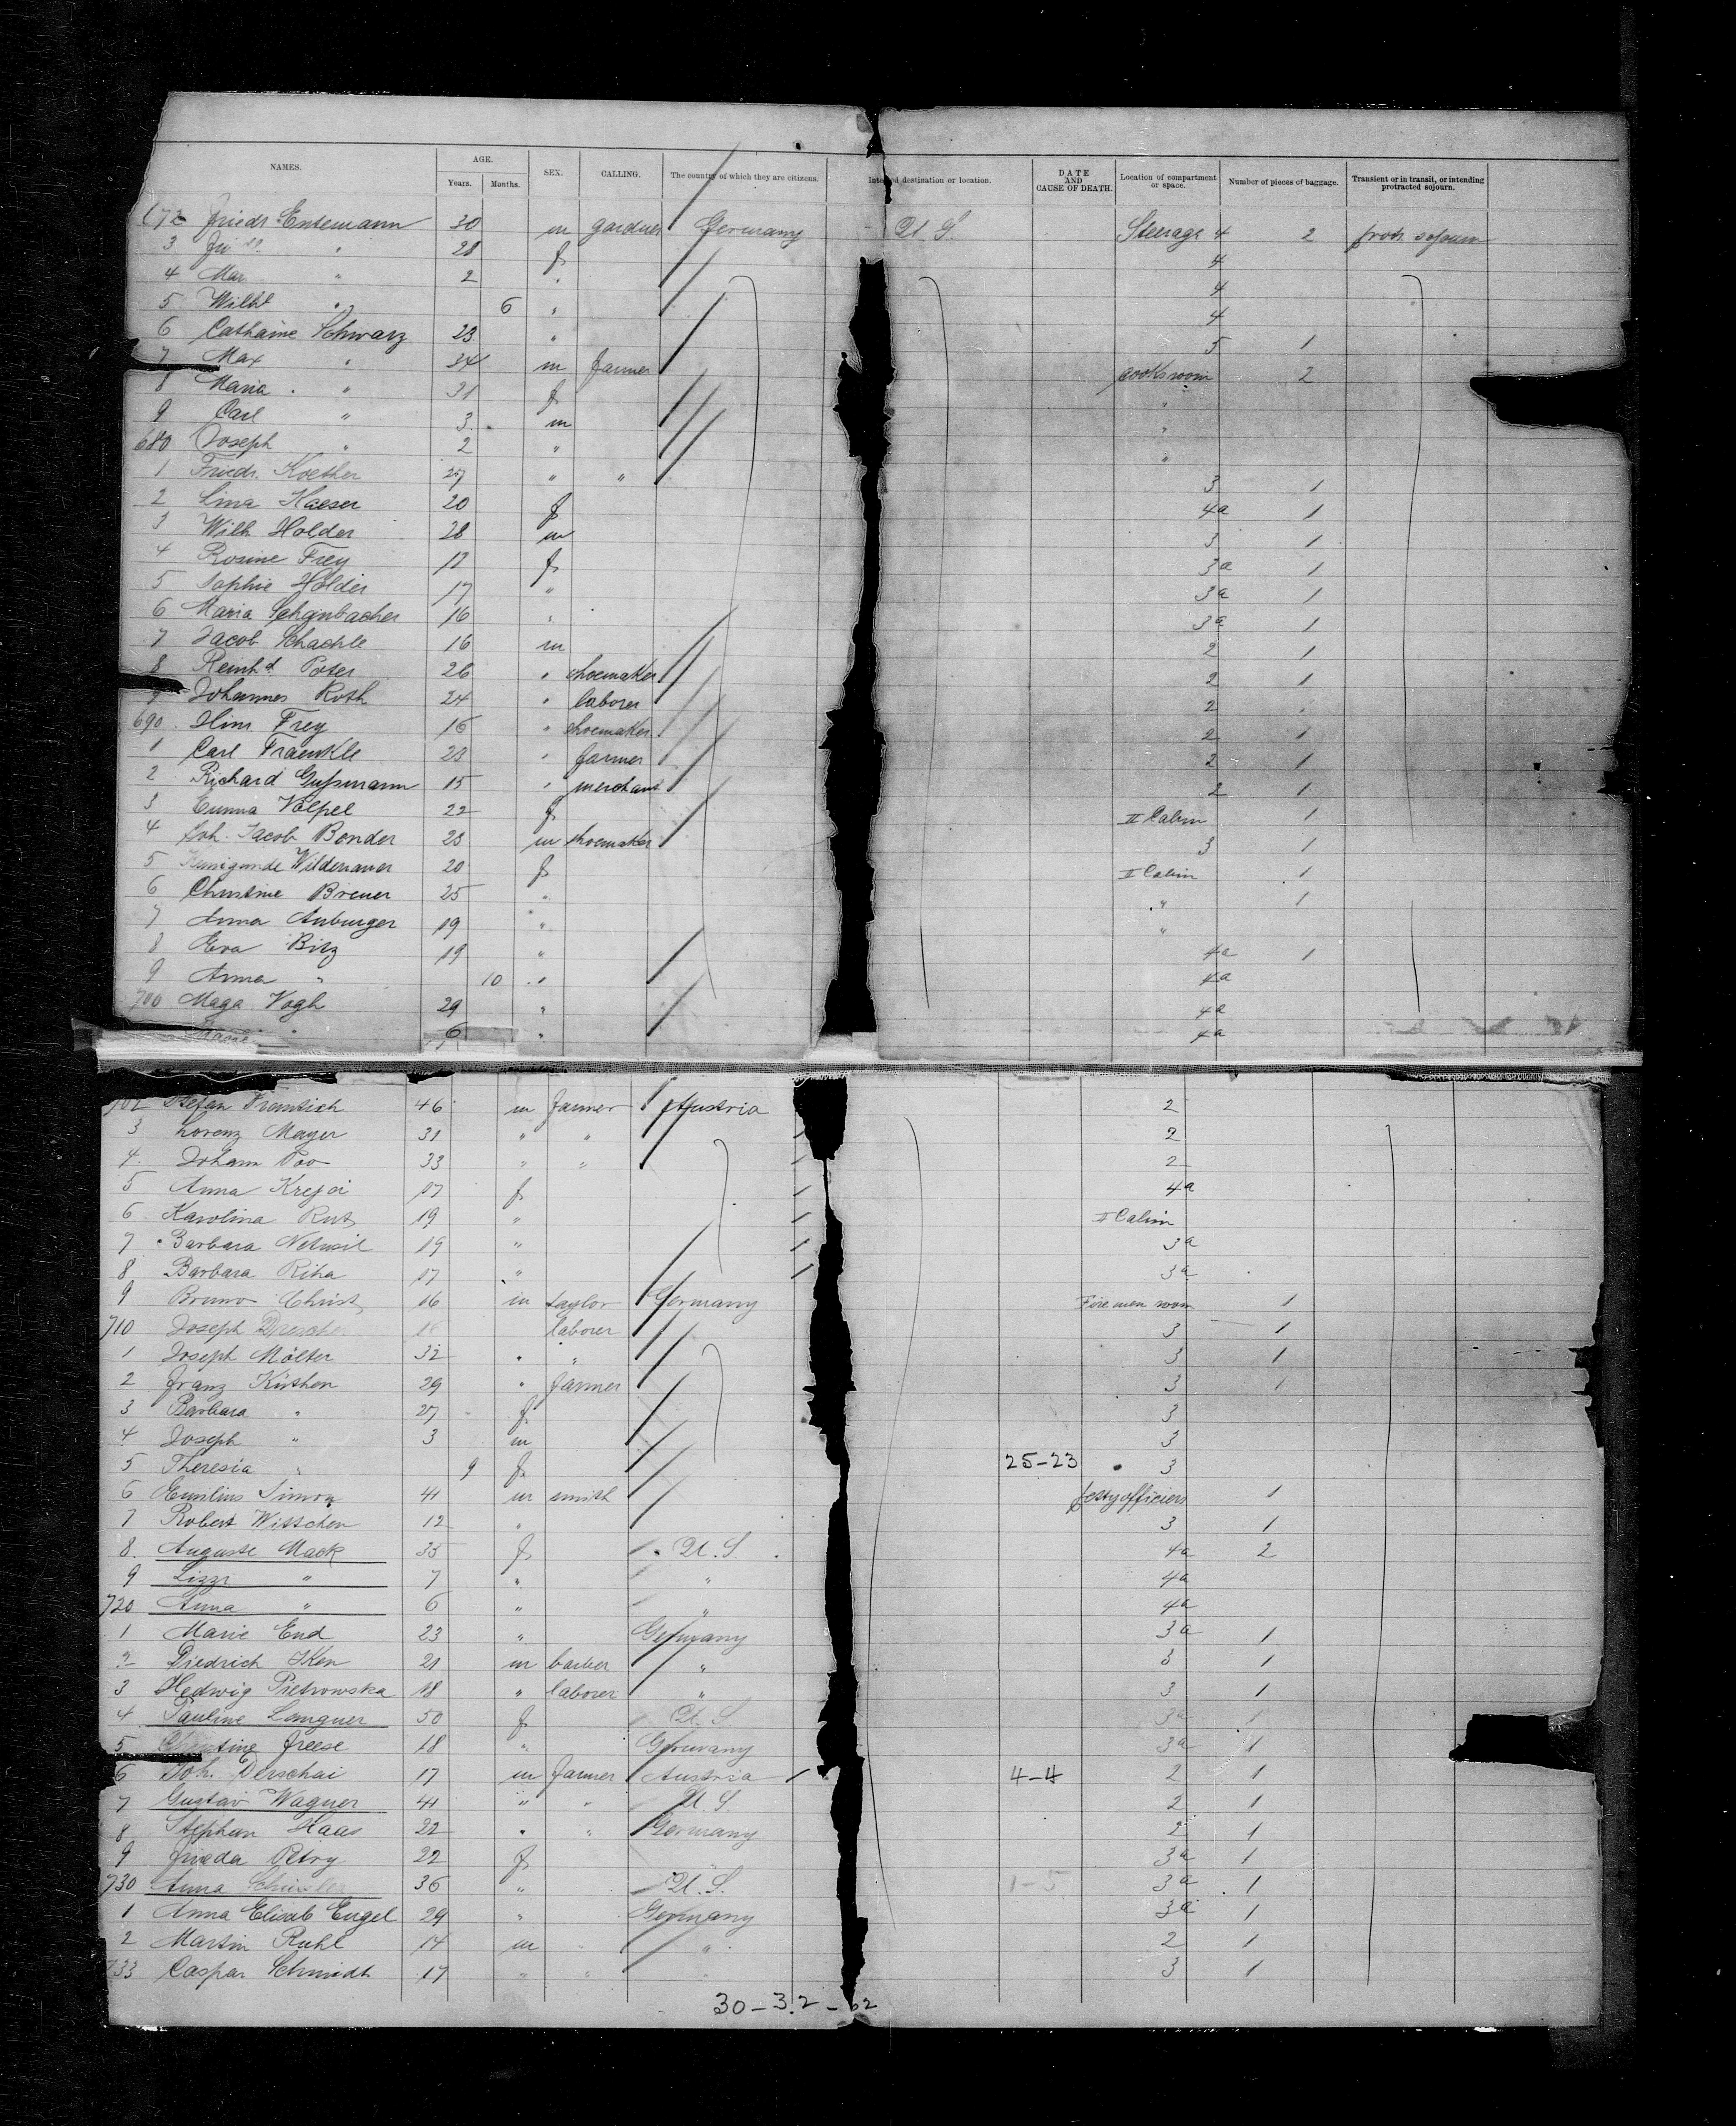 NAMES. AGE. Years. Months. SEX. CALLING. The country of which they are citizens. Intended destination or location. DATE AND CAUSE OF DEATH. Location of compartment or space. Number of pieces of baggage. Transient or in transit, or intending protracted sojourn.
672 Friedr Entemann 30 m gardner Germany U S. Steerage 4 2 protr sojourn
3 " 28 f 4
4 Mar " 2 " 4
5 Wilh " 6 " 4
6 Catharine Schwarz 23 " 5 1
7 Max " 34 m farmer cooks room 2
8 Maria " 31 f "
9 Carl " 3 m "
680 Joseph " 2 " "
1 Friedr. Koether 27 " " 3 1
2 Lina Kaeser 20 f 4a 1
3 Wilh Holder 28 m 3 1
4 Rosine Frey 17 f 3a 1
5 Sophie Holder 17 " 3a 1
6 Maria Schanbacher 16 " 3a 1
7 Jacob Schachle 16 m 2 1
8 Reinhd Poter 26 " shoemaker 2 1
9 Johannes Roth 24 " laborer 2 "
690 Hinr Frey 16 " shoemaker 2 1
1 Carl Fraenkle 23 " farmer 2 1
2 Richard Gußmann 15 " merchant 2 1
3 Emma Völpel 22 f II Cabin 1
4 Joh. Jacob Bender 23 m shoemaker 3 1
5 Kunigunde Wildenauer 20 f II Cabin 1
6 Christine Breuer 25 " " 1
7 Anna Auburger 19 " "
8 Eva Bitz 19 " 4a 1
9 Anna " 10 " 4a
700 Maga Vogh 29 " 4a
Marie " 6 " 4a
702 Stefan 46 m farmer Austria 2
3 Lorenz Mayer 31 " " 2
4 Johann Poo 33 " " 2
5 Anna Krejci 17 f 4a
6 Karolina Rut 19 " II Cabin
7 Barbara Netusil 19 " 3a
8 Barbara Riha 17 " 3a
9 Bruno Christ 16 m taylor Germany Fire men room 1
710 Joseph laborer 3 1
1 Joseph Mölter 32 " " 3 1
2 Franz Kirchen 29 " farmer 3 1
3 Barbara " 27 f 3
4 Joseph " 3 m 3
5 Theresia " 9 f 25-23 3
6 Emilius Simon 41 m smith 1
7 Robert Wittchen 12 " 3 1
8 Auguste Mack 35 f U. S. 4a 2
9 Lizzi " 7 " " 4a
720 Anna " 6 " " 4a
1 Marie End 23 " Germany 3a 1
2 Diedrich Iken 21 m barber " 3 1
3 Hedwig Pietrowska 18 " laborer " 3 1
4 Pauline Langner 50 f U. S 3a 1
5 Christine Freese 18 " Germany 3a 1
6 Joh. Derschai 17 m farmer Austria 4-4 2 1
7 Gustav Wagner 41 " " U S 2 1
8 Stephan Haas 22 " " Germany 2 1
9 Frieda Petry 22 f " 3a 1
730 Anna 36 " U. S. 1-5 3a 1
1 Anna Elisab Engel 29 " Germany 3a 1
2 Martin Ruhl 14 m " " 2 1
733 Caspar Schmidt 17 " " " 3 1
30-32-62